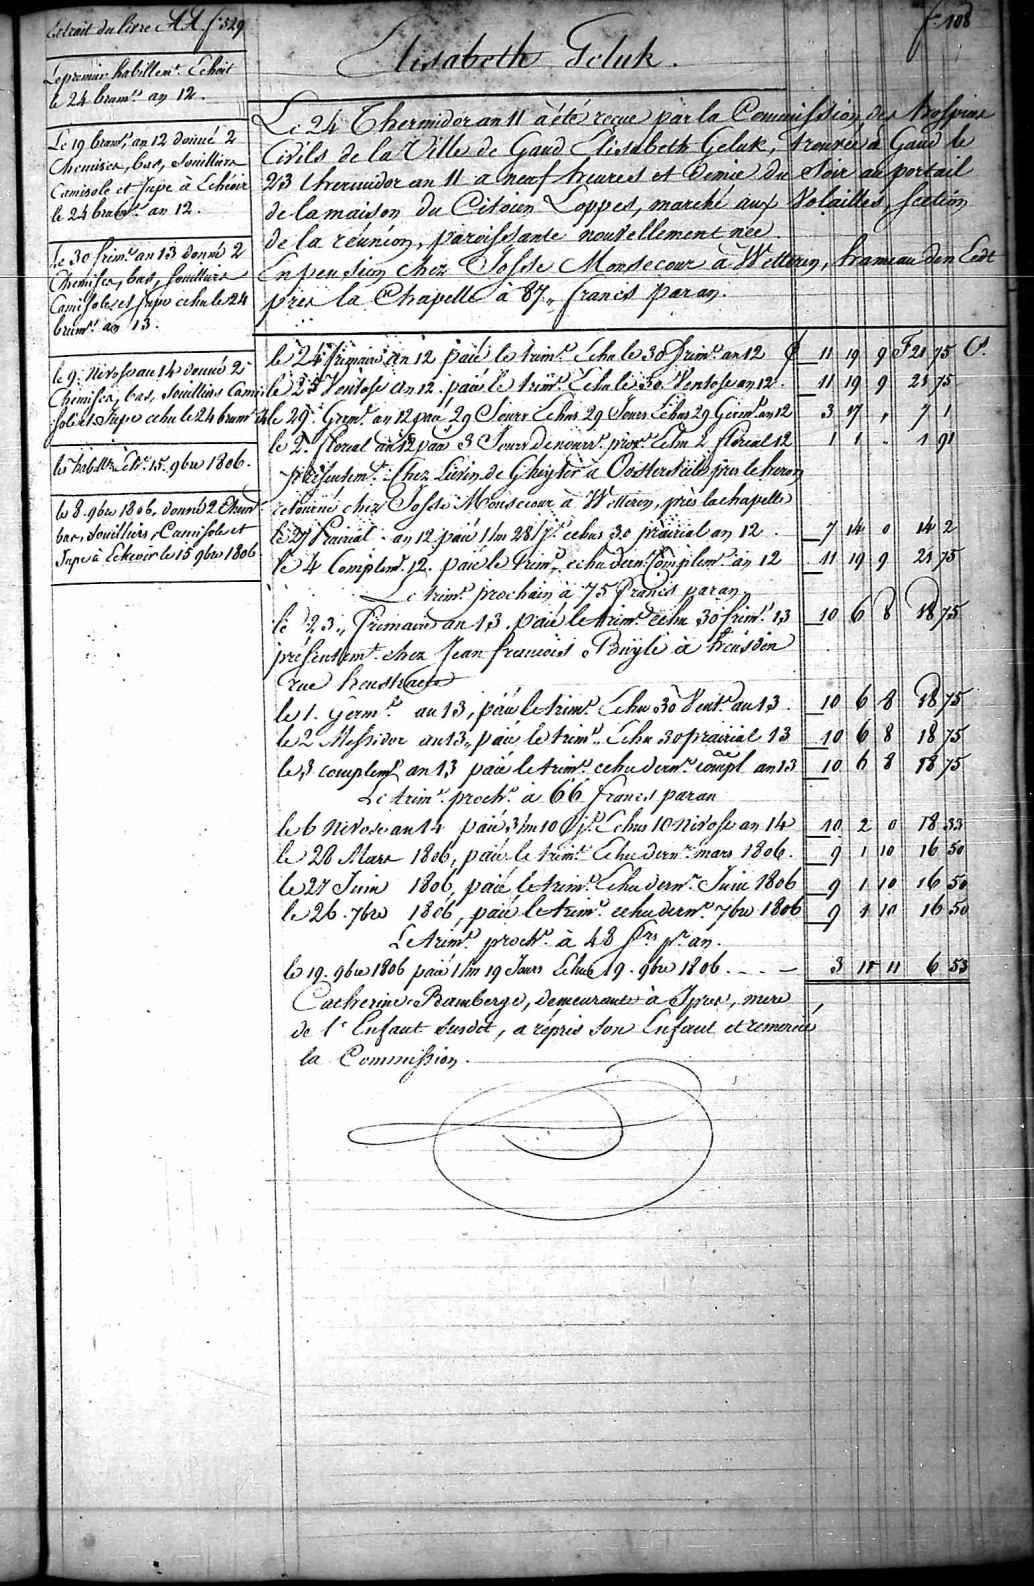 Extrait du livre AA f: 529
f: 108
Elisabeth Geluk.
Le premier habillemt. Echoit
le 24 brumre. an 12.
Le 19 brumre. an 12 donné 2
Chemises, bas, Souilliers
Camisole et Jupe à Echeoir
le 24 brumre. an 12.
le 30 frimre. an 13 donné 2
Chemises, bas, souilliers
Camisole et Jupe echu le 24
brumre. an 13.
le 9. Nivose an 14 donné 2
Chemises, bas, Souilliers Cami
sole et Jupe echu le 24 brumre
les habillts. Echt. 15. 9bre 1806.
le 8. 9bre 1806. donné 2 Chem
bas, Souilliers, Camisole et
Jupe à Echeoir le 15 9bre 1806
Le 24 Thermidor an 11 a été reçue par la Commission des hospices
Civils de la Ville de Gand Elisabeth Geluk, trouvée à Gand le
23 thermidor an 11 a neuf heures et demie du Soir au portail
de la maison du Citoien Loppes, marché aux Volailles, section
de la réunion, paroissante nouvellement née
En pension chez Josse Monsecour à Wetteren, hameau den Eedt
près la Chapelle à 87,, francs par an.
le 24 frimaire an 12 paié le trimre. Echu le 30 frimre. an 12 11 19 9 F 21 75 Cs.
le 25 Ventose an 12. paié le trimre. Echu le 30. Ventose an 12. 11 19 9 21 75
le 29. Germl. an 12 paié 29 Jours Echus 29 Jours Echus 29 Germl. an 12 3 17 , 7 1
le 2. floreal an 12 paié 3 Jours de nourre. Echu 2 floreal 12 1 1 - 1 91
présentemt. Chez Lievin de Gheyter à Oosterzeele près le heron
retourné chez Josse Monsecour à Wetteren, près la chapelle
le 27 Prairial an 12 paié 1/m 28/js. echus 30 prairial an 12 . 7 14 0 14 2
le 4 Complemre. 12. paié le trimre. echu dernr. Complemre. an 12 11 19 9 21 75
Le trimre. prochain à 75 francs par an
le 23,, frimaire an 13. paié le trimre. echu 30 frimre. 13 10 6 8 18 75
présentemt. chez Jean francois Buyle à heusden
rue
le 1. Germl. an 13, paié le trimre. Echu 30 Vente. an 13. 10 6 8 18 75
le 2 Messidor an 13,, paié le trimre. Echu 30 prairial 13 10 6 8 18 75
le 3 complemre an 13 paié le trimre. echu dernr. compl an 13 10 6 8 18 75
Le trimre. proche. à 66 francs par an
le 6 Nivose an 14 paié 3/m 10/js. Echus 10 Nivose an 14 10 2 0 18 33
le 28 Mars 1806, paié le trimre. Echu dernr. mars 1806. 9 1 10 16 50
le 27 Juin 1806, paié le trimre. Echu dernr. Juin 1806 9 1 10 16 50
le 26. 7bre 1806, paié le trimre. echu dernr. 7bre 1806 9 1 10 16 50
Le trimre. proche. à 48 frs pr. an.
le 19. 9bre 1806 paié 1/m 19 Jours Echus 19. 9bre 1806. . . — 3 11 11 6 53
Catherine Bamberge, demeurante à Ipres, mere
de l'Enfant susdit, a répris son Enfant et remercié
la Commission.